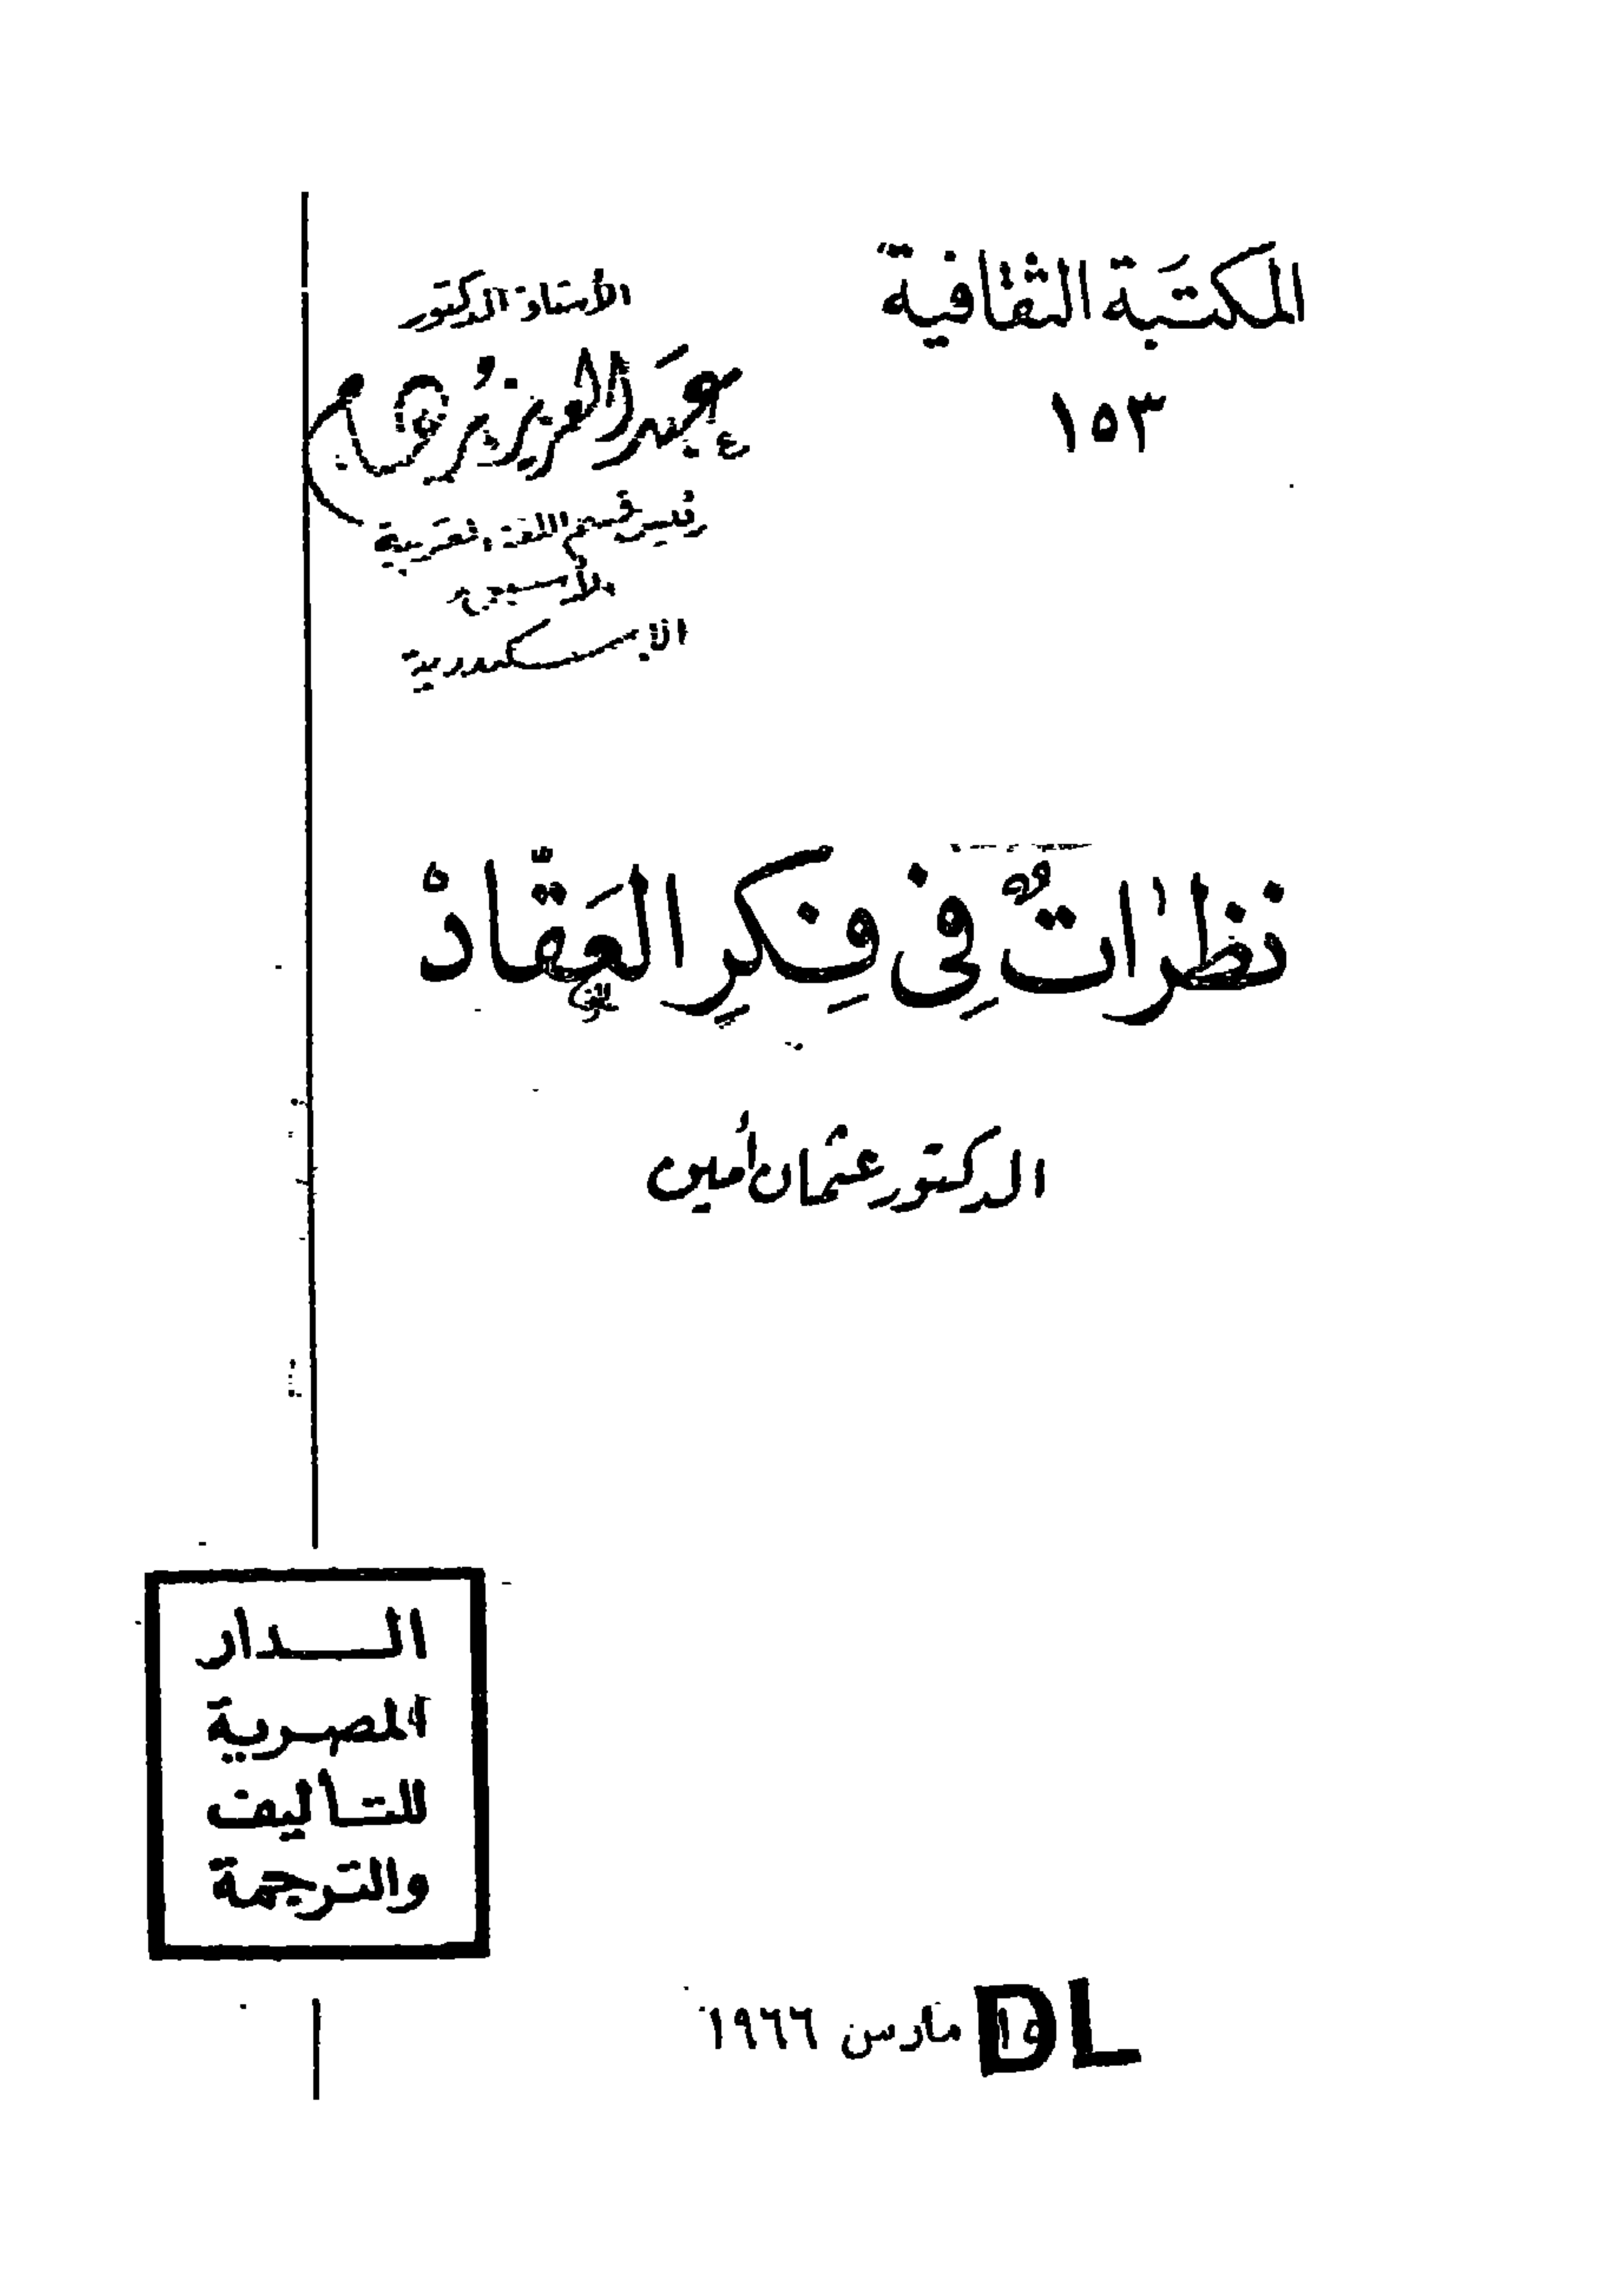 المكتبة الثقافية
١٥٣
الأستاذ الدكتور
عبد العزيز برهام
رئيس قسم اللغة العربية
الإسكندرية
نظرات في فكر العقاد
الدكتور عثمان أمين
الدار
المصرية
للتأليف
والترجمة
DL
١٥ مارس ١٩٦٦